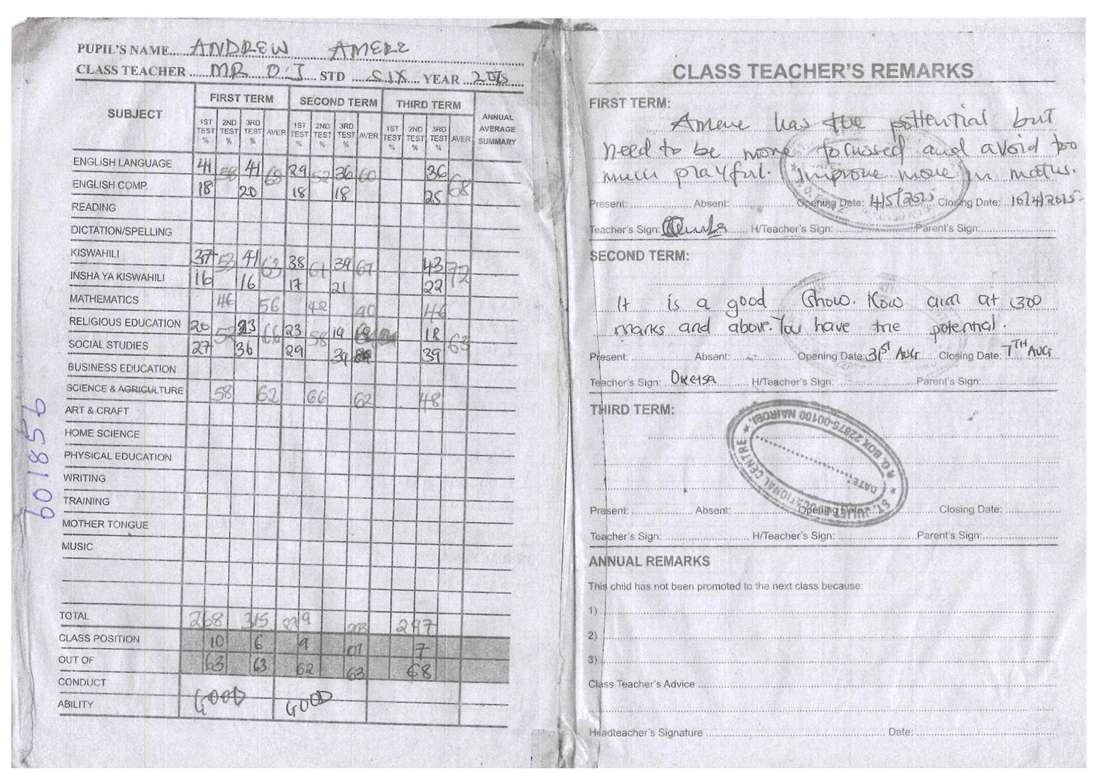 PUPIL'S NAME ANDREW AMERE
CLASS TEACHER MR O.J STD SIX YEAR 2015
SUBJECT FIRST TERM SECOND TERM THIRD TERM ANNUAL AVERAGE SUMMARY
1ST TEST % 2ND TEST % 3RD TEST % AVER 1ST TEST % 2ND TEST % 3RD TEST % AVER 1ST TEST % 2ND TEST % 3RD TEST % AVER
ENGLISH LANGUAGE 41 41 29 52 36 60 36
ENGLISH COMP. 18 20 18 18 25 68
READING
DICTATION/SPELLING
KISWAHILI 37 53 41 63 38 61 39 43 72
INSHA YA KISWAHILI 16 16 17 21 22
MATHEMATICS 46 56 42 40 46
RELIGIOUS EDUCATION 20 23 66 23 58 19 18 63
SOCIAL STUDIES 27 36 29 39 39
BUSINESS EDUCATION
SCIENCE & AGRICULTURE 58 62 66 62 48
ART & CRAFT
HOME SCIENCE
PHYSICAL EDUCATION
WRITING
TRAINING
MOTHER TONGUE
MUSIC
TOTAL 268 315 297
CLASS POSITION 10 6 9 7
OUT OF 63 63 62 63 68
CONDUCT
ABILITY GOOD GOOD
601856
CLASS TEACHER'S REMARKS
FIRST TERM:
Amere has the pottential but
need to be more focussed and avoid too
much playful. Improve more in maths.
Present: Absent: Opening Date: 4/5/2015 Closing Date: 10/4/2015
Teacher's Sign: H/Teacher's Sign: Parent's Sign:
SECOND TERM:
It is a good show. Now aim at 300
marks and above. You have the potential.
Present: Absent: Opening Date: 31ST AUG Closing Date: 7TH AUG
Teacher's Sign: Okeisa H/Teacher's Sign: Parent's Sign:
THIRD TERM:
ST. JULIET EDUCATIONAL CENTRE
DATE:
P.O. BOX 22875-00100 NAIROBI
Present: Absent: Opening Date: Closing Date:
Teacher's Sign: H/Teacher's Sign: Parent's Sign:
ANNUAL REMARKS
This child has not been promoted to the next class because:
1)
2)
3)
Class Teacher's Advice
Headteacher's Signature Date: